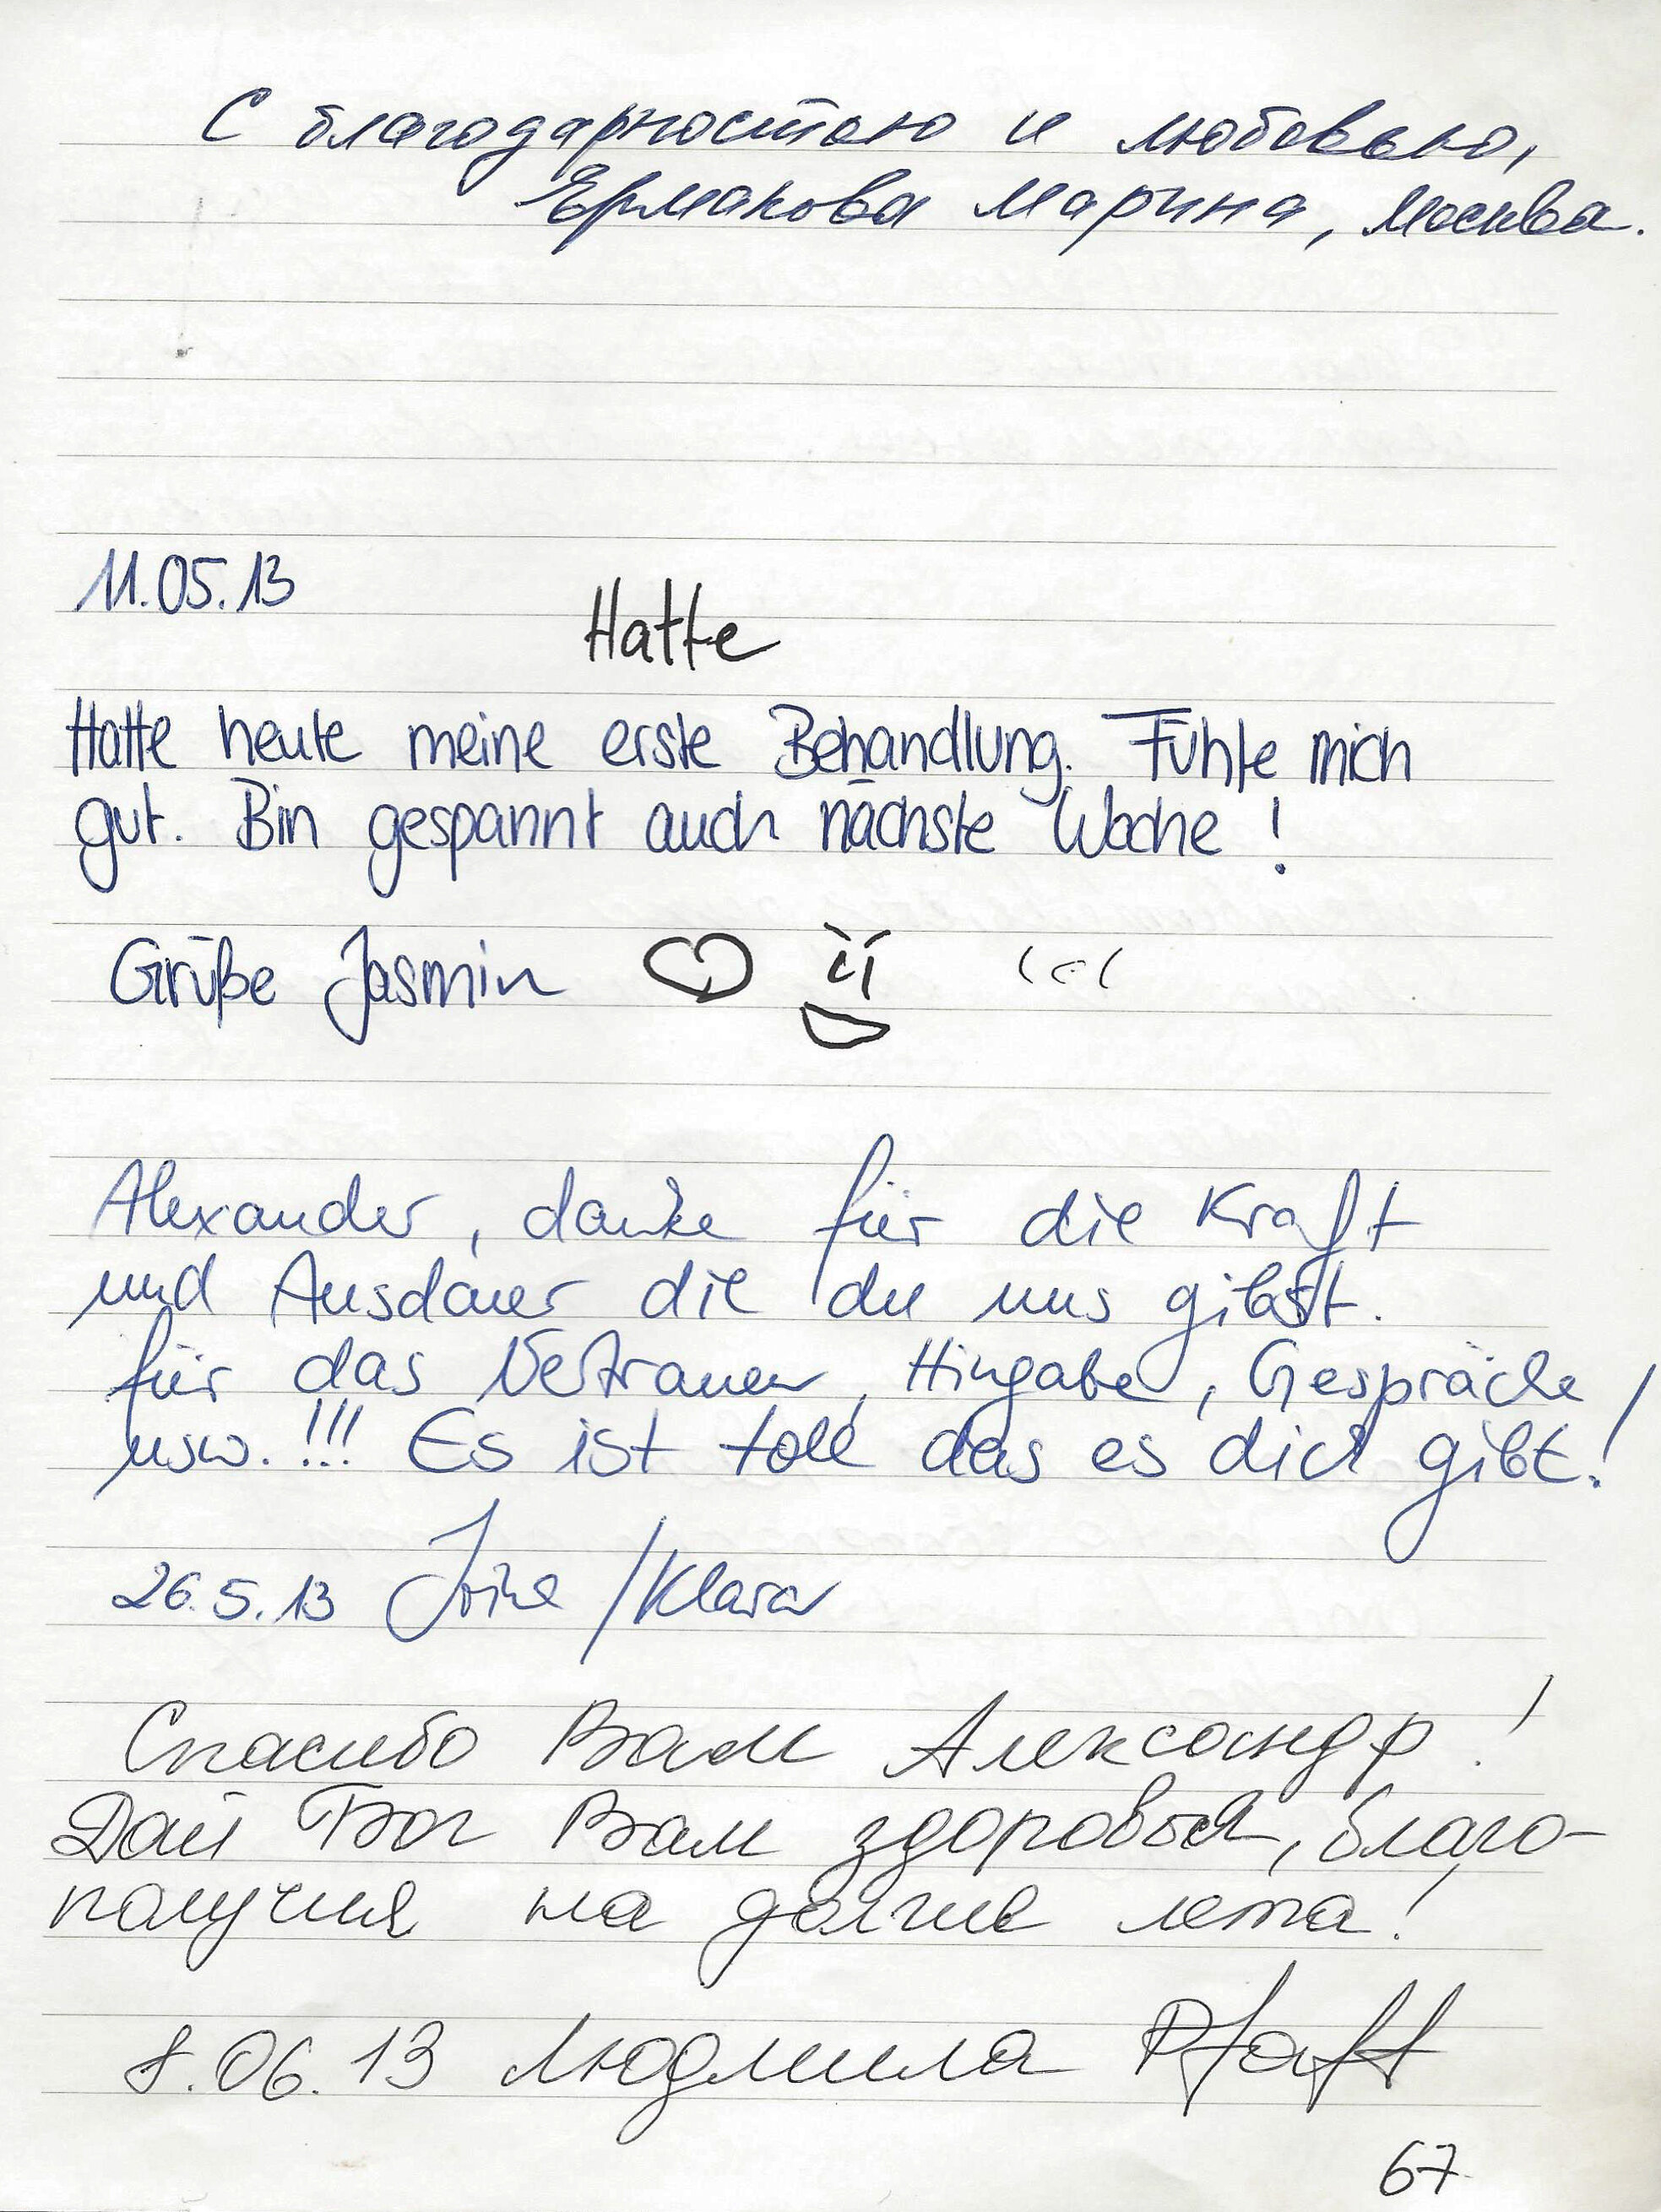 С благодарностью и любовью,
Ермакова Марина, Москва.
11.05.13
Hatte
Hatte heute meine erste Behandlung. Fühle mich
gut. Bin gespannt auch nächste Woche !
Grüße Jasmin
Alexander, danke für die Kraft
und Ausdauer die du uns gibst.
für das Vertrauen, Hingabe, Gespräche
usw. !!! Es ist toll das es dich gibt!
26.5.13 /Klara
Спасибо Вам Александр!
Дай Бог Вам здоровья, благо-
получия на долгие лета!
8.06.13 Людмила Pfaff
67